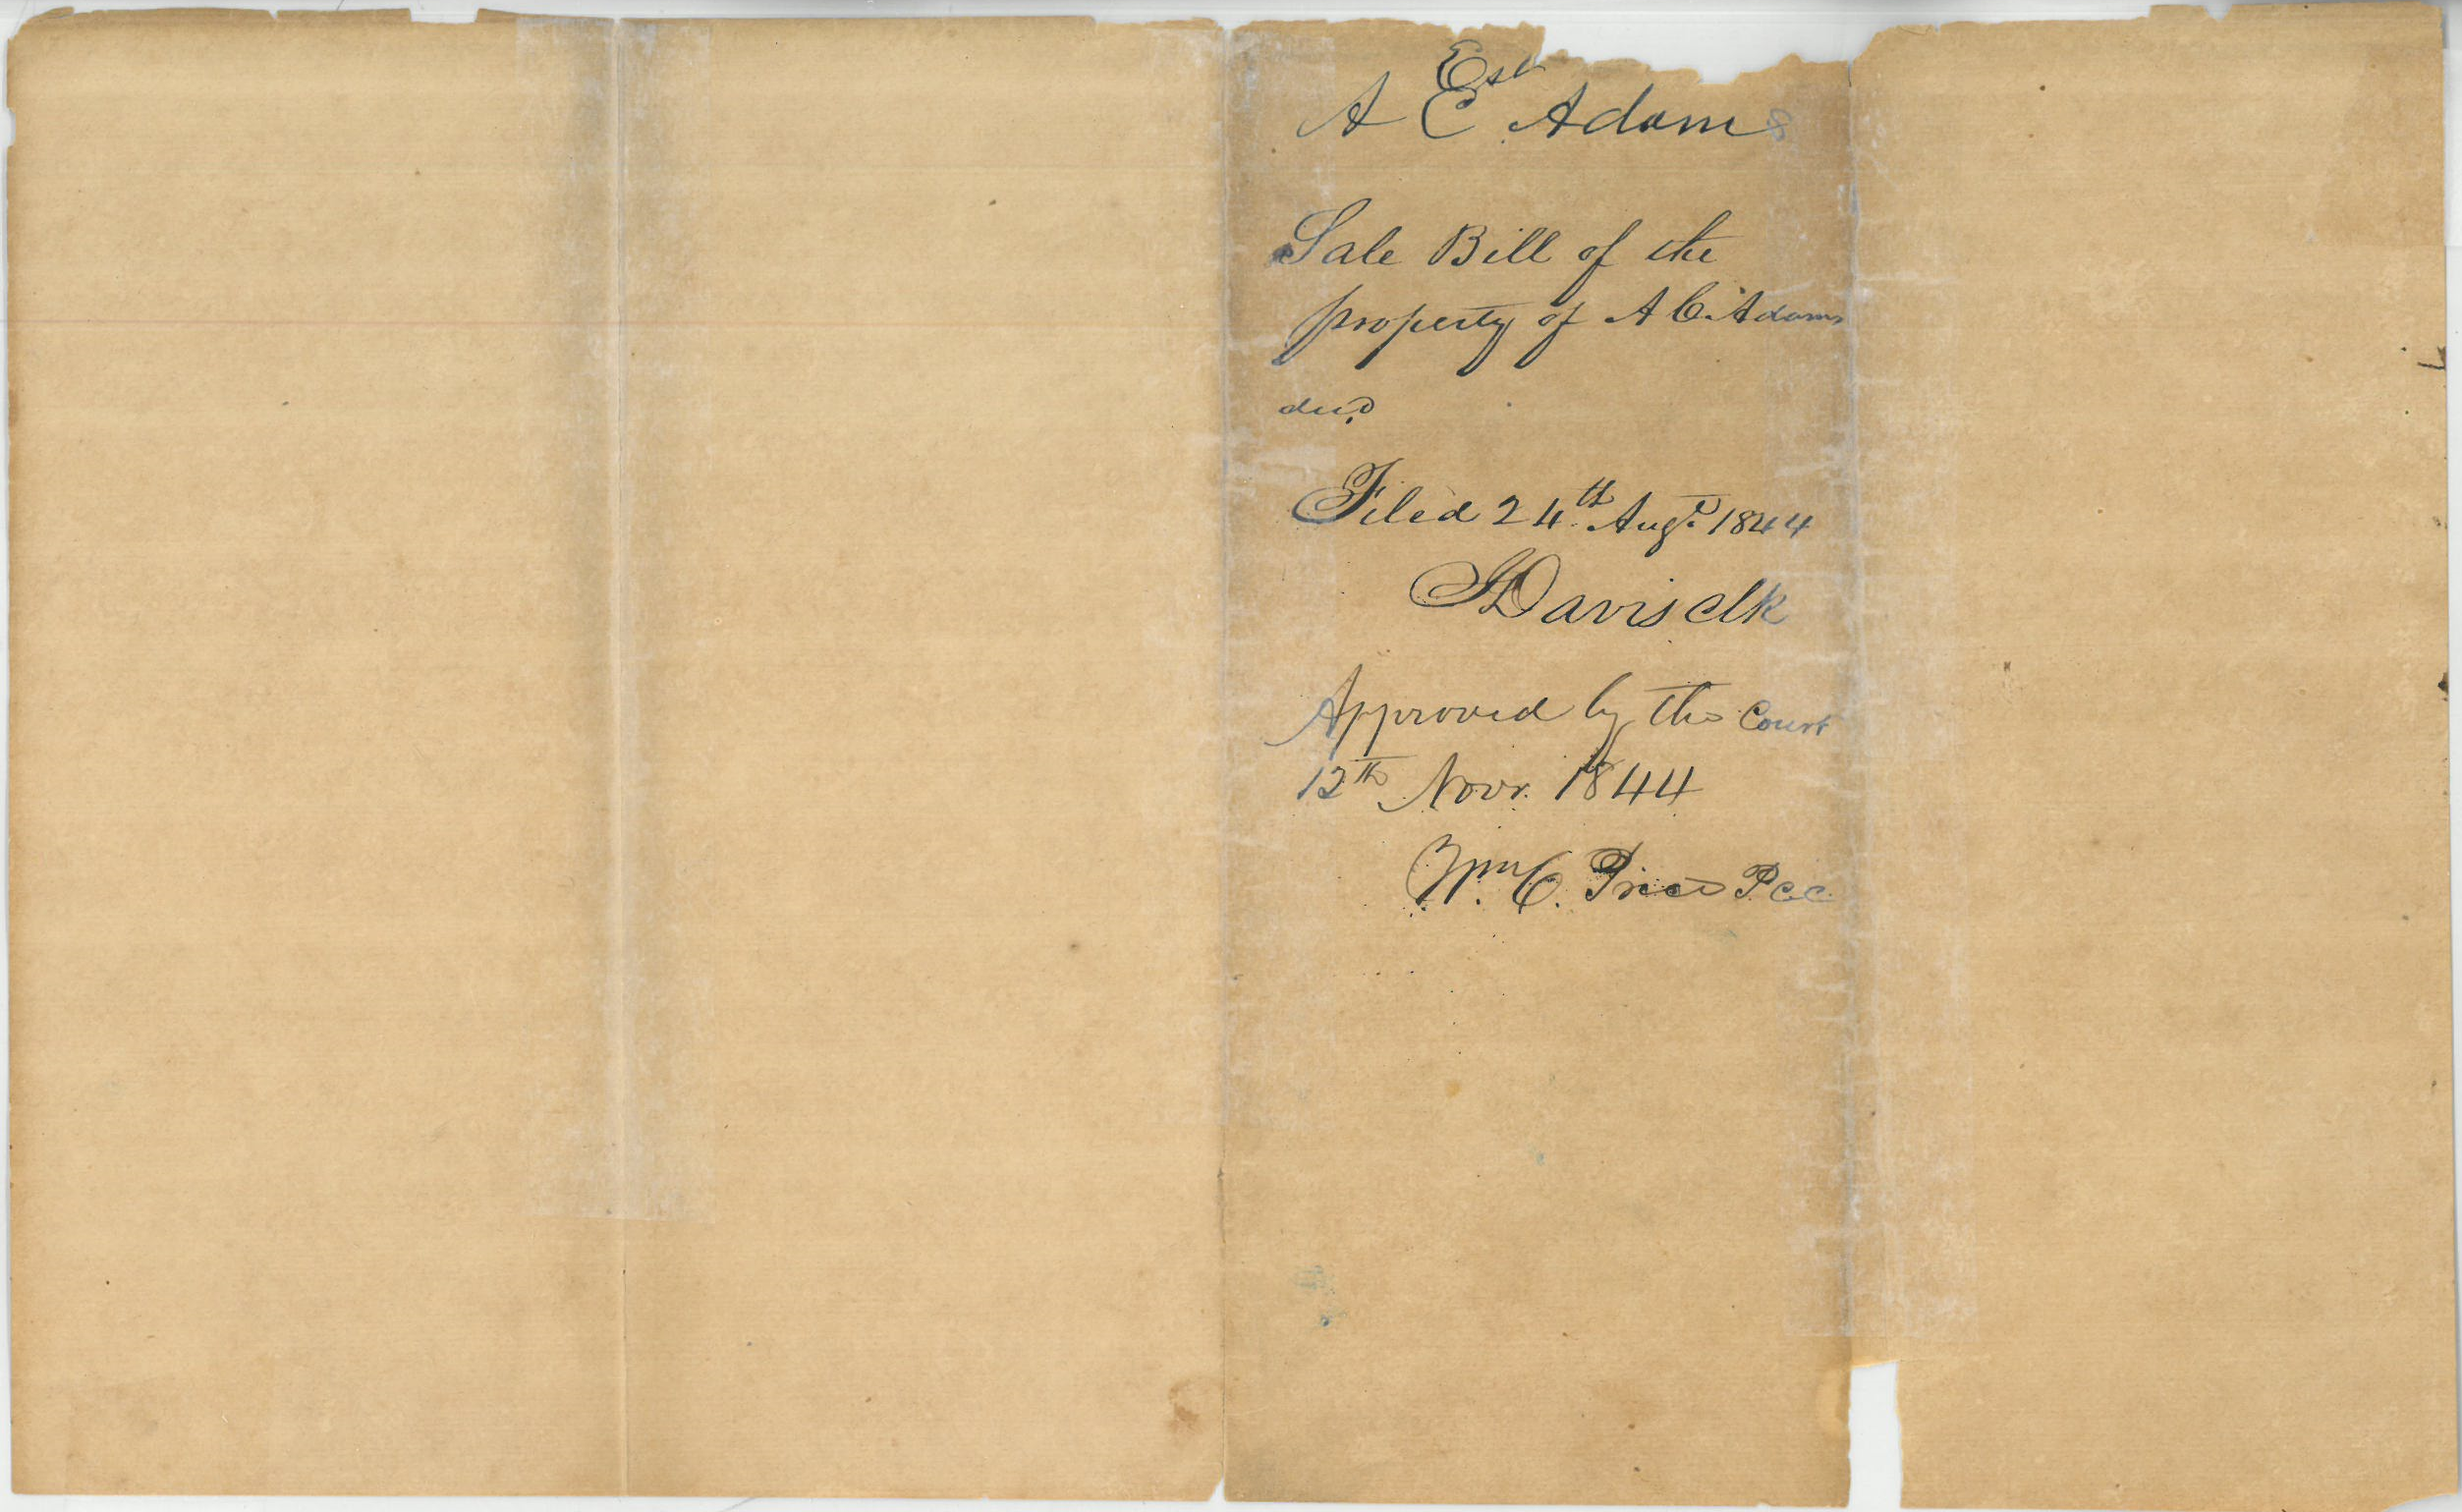 Est
A C Adams
Sale Bill of the
property of A C Adams
decd.
Filed 24th Augt. 1844
J Davis clk
Approved by the Court
12th Novr. 1844
Wm C. Price P.C.C.